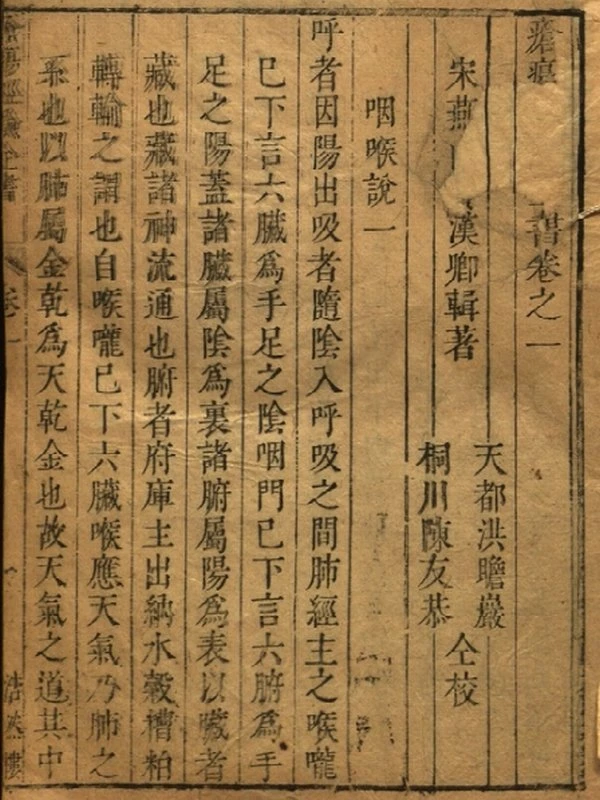 瘡瘍 書卷之一
天都洪瞻巖
宋燕 漢卿輯著 桐川陳友恭 仝校
咽喉說一
呼者因陽出吸者隨陰入呼吸之間肺經主之喉嚨
已下言六臟爲手足之陰咽門已下言六腑爲手
足之陽蓋諸臟屬陰爲裏諸腑屬陽爲表以臟者
藏也藏諸神流通也腑者府庫主出納水穀糟粕
轉輸之謂也自喉嚨已下六臟喉應天氣乃肺之
系也以肺屬金乾爲天乾金也故天氣之道其中
瘡瘍經驗全書 卷一 浩然樓